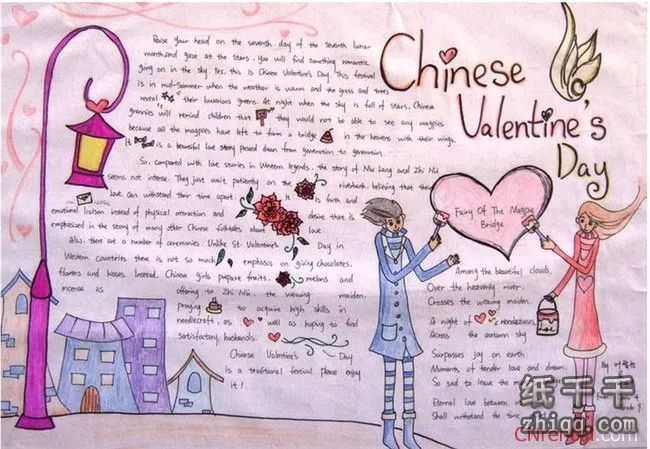 Chinese
Valentine's
Day
Raise your head on the seventh day of the seventh lunar
month and gaze at the stars, you will find something romantic
going on in the sky. Yes, this is Chinese Valentine's Day. This festival
is in mid-Summer when the weather is warm and the grass and trees
reveal their luxurious greens. At night when the sky is full of stars, Chinese
grannies will remind children that they would not be able to see any magpies
because all the magpies have left to form a bridge in the heavens with their wings.
It is a beautiful love story passed down from generation to generation.
So, compared with love stories in Western legends, the story of Niu lang and Zhi Nü
seems not intense. They just wait patiently on the riverbank, believing that their
love can withstand their time apart. It is faith and
emotional liaison instead of physical attraction and desire that is
emphasised in the story of many other Chinese folktales about love.
Also, there are a number of ceremonies. Unlike St. Valentine's Day in
Western countries there is not so much emphasis on giving chocolates,
flowers and kisses. Instead, Chinese girls prepare fruits, melons and
incense as offering to Zhi Nü, the weaving maiden,
praying to acquire high skills in
needlecraft, as well as hoping to find
satisfactory husbands.
Chinese Valentine's Day
is a traditional festival. please enjoy
it!
Fairy Of The Magpie
Bridge
Among the beautiful clouds,
Over the heavenly river,
Crosses the weaving maiden.
A night of rendezvous,
Across the autumn sky
Surpasses joy on earth.
Moments of tender love and dream,
So sad to leave the
Eternal love between
Shall withstand the time
By
纸千千
zhiqq.com